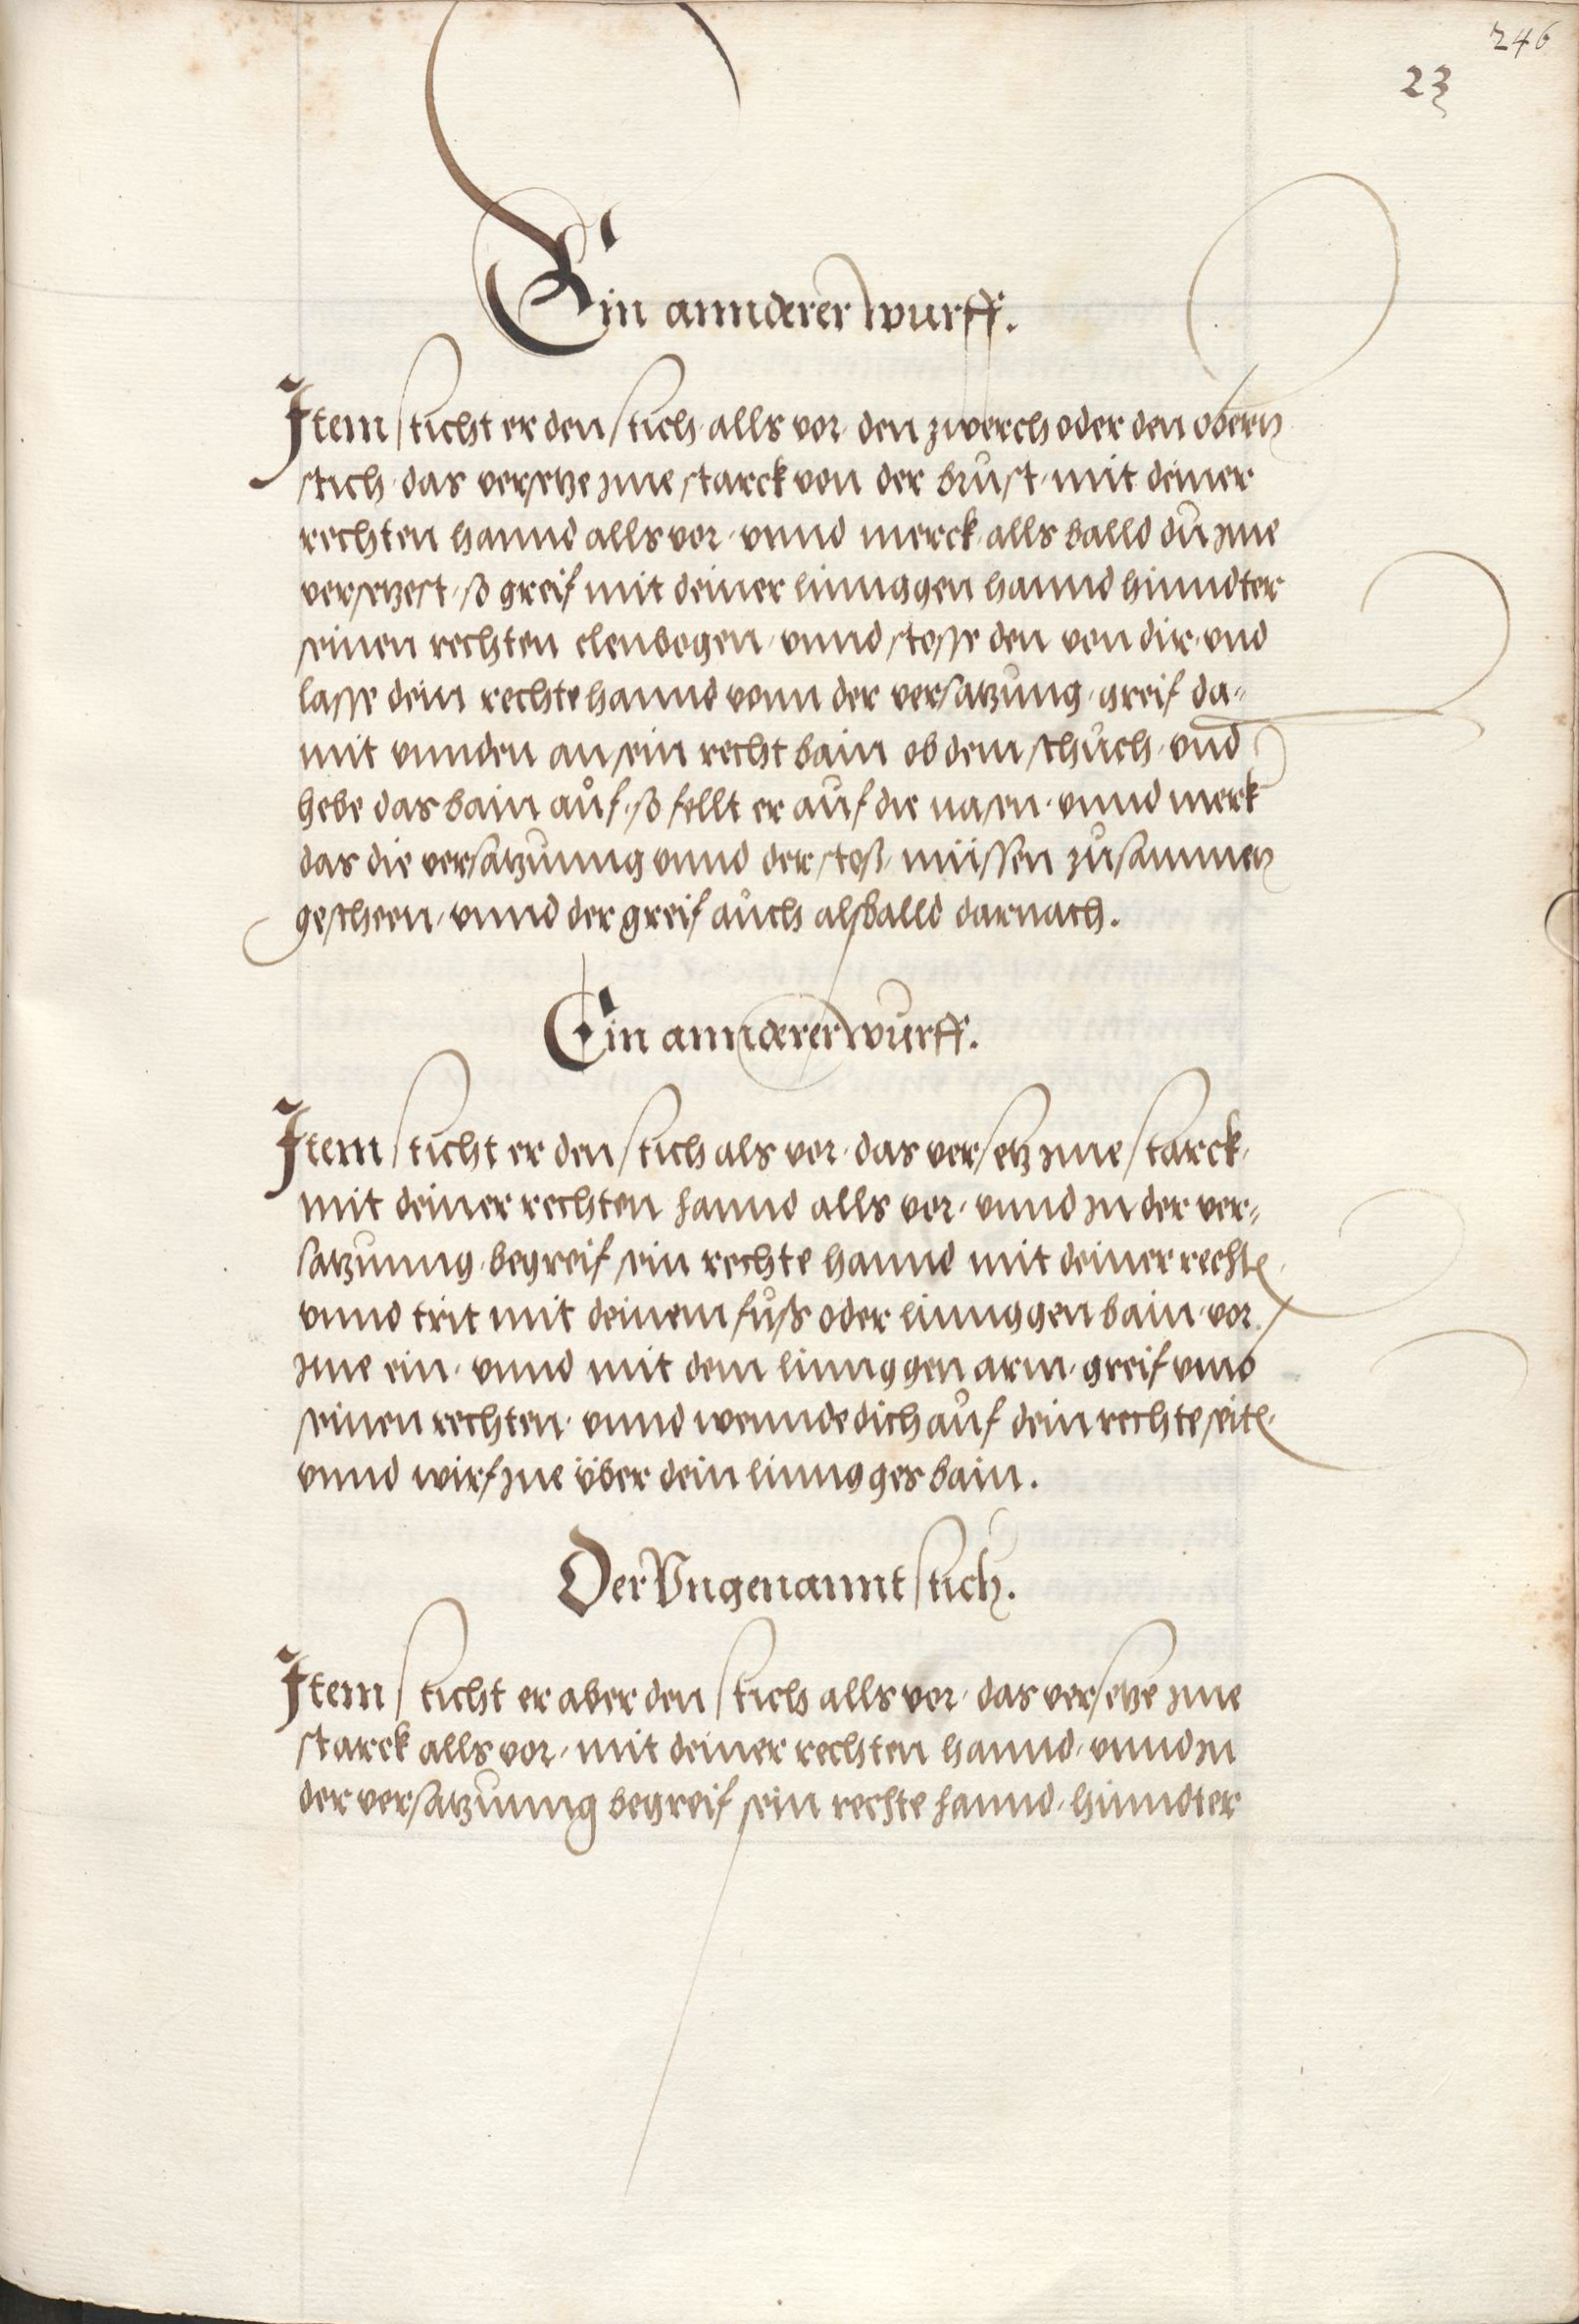 246
23
Ein annderer wurff.
Item sticht er den stich alls vor den zwerch oder den obern
stich das versetze Ime starck von der brust mit deiner
rechten hannd alls vor vnnd merck alls balld du Ime
versetzest so greif mit deiner linnggen hannd hinndter
seinen rechten elenbogen vnnd stosse den von dir vnd
lasse dein rechte hannd vonn der versatzung greif da=
mit vnnden an sein recht bain ob dem schuch vnd
hebe das bain auf so fellt er auf die nasen vnnd merk
das die versatzunng vnnd der stoß müssen zusammen
gescheen vnnd der greif auch alsballd darnach.
Ein annderer wurff.
Item sticht er den stich als vor das versetz Ime starck
mit deiner rechten hannd alls vor vnnd In der ver=
satzunng begreif sein rechte hannd mit deiner rechten
vnnd trit mit deinem fuß oder linnggen bain vor
Ime ein vnnd mit dem linnggen arm greif vmb
seinen rechten vnnd wennde dich auf dein rechte seiten
vnnd wirf Ine über dein linngges bain.
Der Vngenannt stich.
Item sticht er aber den stich alls vor das versetze Ime
starck alls vor mit deiner rechten hannd vnnd In
der versatzunng begreif sein rechte hannd hinndter